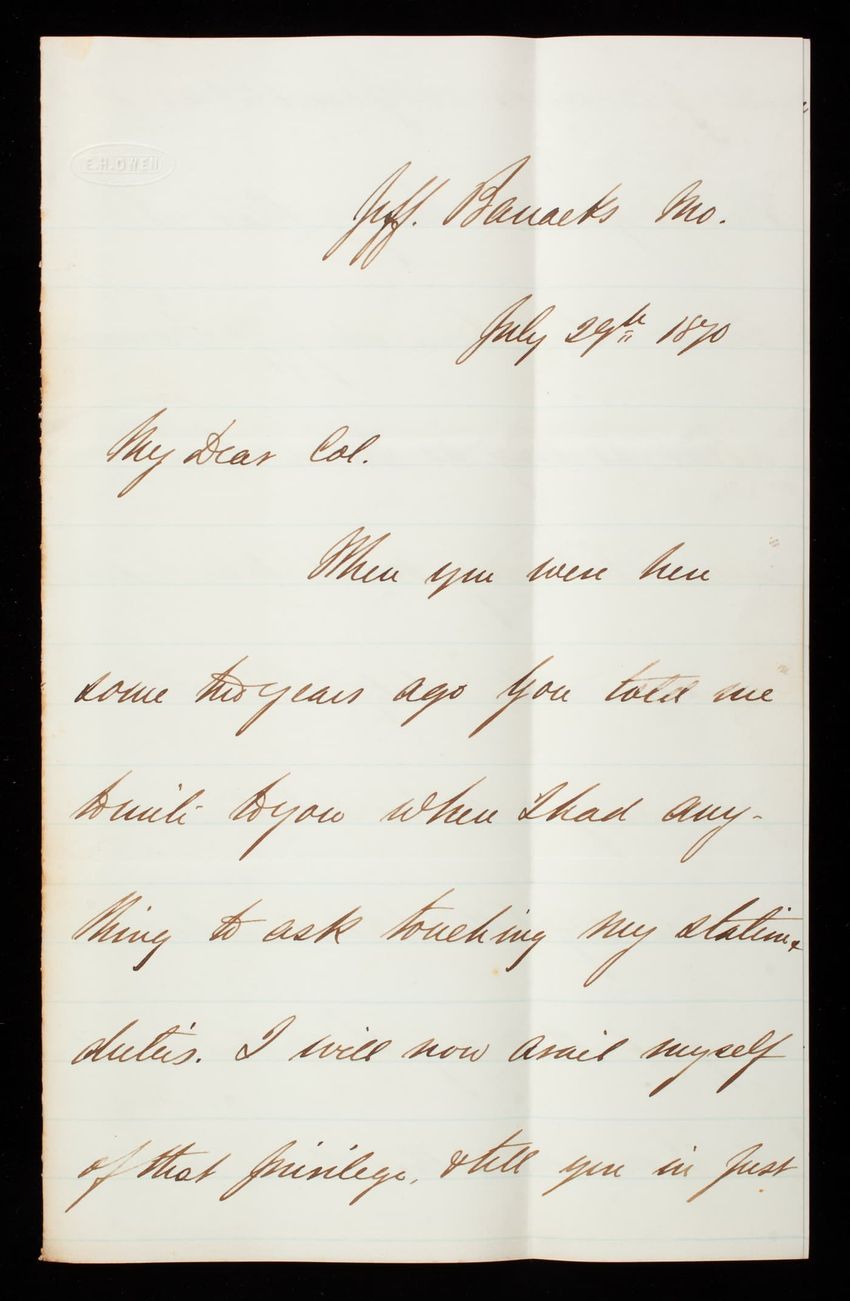 E.H.OWEN
Jeff. Barracks Mo.
July 29th 1870
My Dear Col.
When you were here
some two years ago you told me
to write to you when I had any-
thing to ask touching my station &
duties. I will now avail myself
of that privilege, & tell you in just